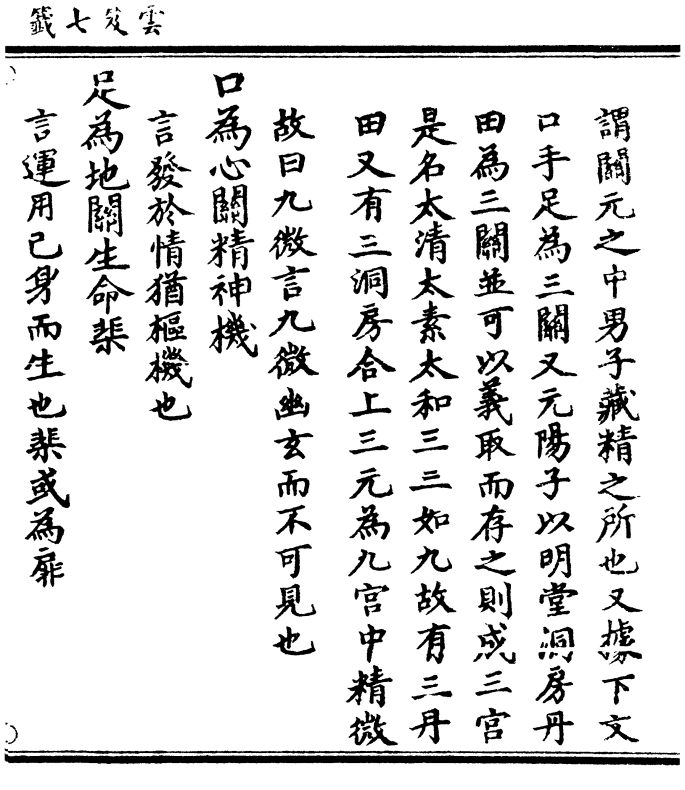 雲笈七籤
謂關元之中男子藏精之所也又據下文
口手足為三關又元陽子以明堂洞房丹
田為三關並可以義取而存之則成三宮
是名太清太素太和三三如九故有三丹
田又有三洞房合上三元為九宮中精微
故曰九微言九微幽玄而不可見也
口為心關精神機
言發於情猶樞機也
足為地關生命棐
言運用己身而生也棐或為扉